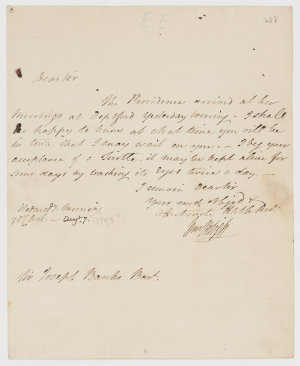 E E
Dear Sir
The Providence arrived at her
moorings at Deptford Yesterday evening. I shall
be happy to know at what time you will be
in town that I may wait on you. — I beg your
acceptance of a Turtle. it may be kept alive for
some days by washing its Eyes twice a day. —
I remain Dear Sir
Your most Obliged &
Humble Servt.
Wm Bligh
Wednesdy morning
7 O'Clock. — Augt. 7. 1793
Sir Joseph Banks Bart.